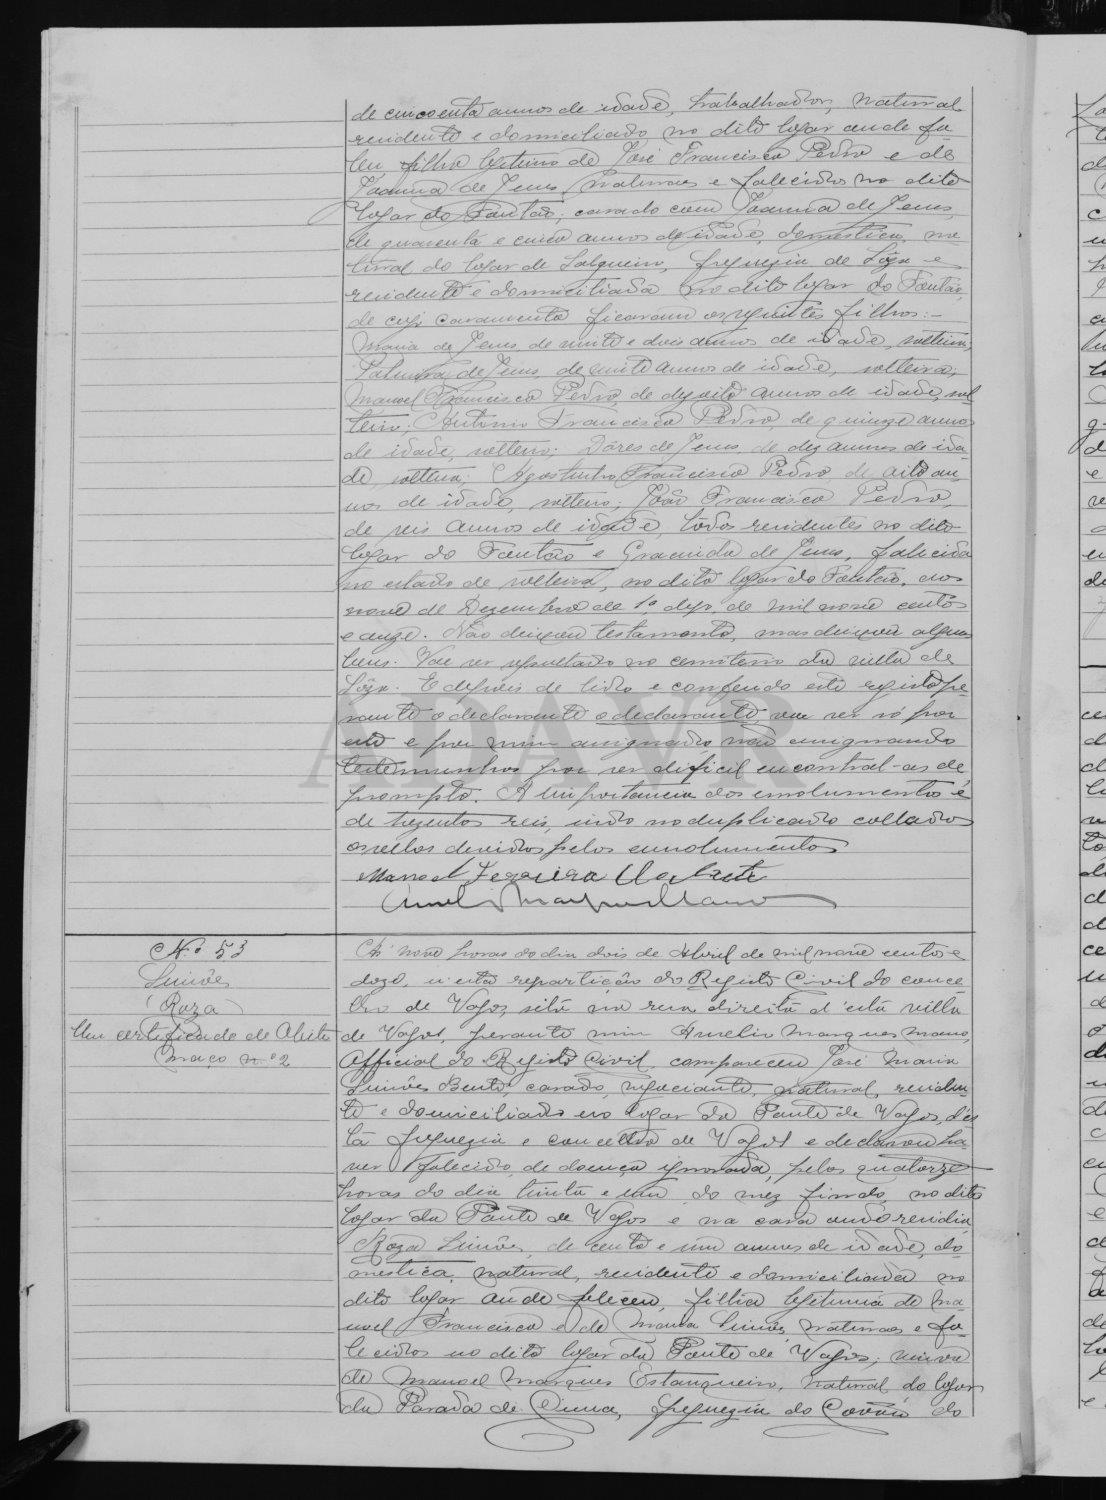 de cincoenta annos de idade, trabalhador, natural
residente e domiciliado no dito logar onde fa-
leu filho legitimo de José Francisco Pedro e de
Joanna de Jesus, naturaes e falecidos no dito
logar do Fontão; casado com Joanna de Jesus,
de quarenta e cinco annos de idade, domestica, na-
tural do logar de Salgueiro, freguezia de Sôza e
residente e domiciliada no dito logar do Fontão,
de cujo casamento ficaram os seguintes filhos:-
Maria de Jesus, de vinte e dois annos de idade, solteira;
Palmira de Jesus, de vinte annos de idade, solteira;
Manoel Francisco Pedro, de desoito annos de idade, sol-
teiro; Antonio Francisco Pedro, de quinze annos
de idade, solteiro; Dôres de Jesus, de dez annos de ida-
de, solteira; Agostinho Francisco Pedro, de oito an-
nos de idade, solteiro; João Francisco Pedro,
de seis annos de idade, todos residentes no dito
logar do Fontão e Gracinda de Jesus, falecida
no estado de solteira, no dito logar do Fontão, aos
nove de Dezembro de 1º, digo, de mil nove centos
e onze. Não deixou testamento, mas deixou alguns
bens. Vae ser sepultado no cemiterio da villa de
Sôza. E depois de lido e conferido este registo pe-
rante o declarante o declarante, vae ser só por
este e por mim assignado, não assignando
testemunhas por ser dificil encontral-as de
prompto. A importancia dos emolumentos é
de trezentos reis, indo no duplicado collados
os sellos devidos pelos emolumentos
Manoel Ferreira
Amelio Marques Mano
Nº 53
Simões
(Roza)
Um certificado de obito
Maço nº 2
Ás nove horas do dia dois de Abril de mil nove centos e
doze, n'esta repartição do Registo Civil do conce-
lho de Vagos, sita na rua direita d'esta villa
de Vagos, perante mim Amelio Marques Mano,
Official do Registo Civil, compareceu José Maria
Simões Bento, casado, negociante, natural, residen-
te e domiciliado no logar da Ponte de Vagos, d'es-
ta freguezia e concelho de Vagos e declarou ha-
ver falecido, de doença ignorada, pelas quatorze
horas do dia trinta e um do mez findo, no dito
logar da Ponte de Vagos e na casa onde residia,
Roza Simões, de cento e um annos de idade, do-
mestica, natural, residente e domiciliada no
dito logar onde faleceu, filha legitima de Ma-
noel Francisco e de Maria Simões, naturaes e fa-
lecidos no dito logar da Ponte de Vagos; viuva
de Manoel Marques Estanqueiro, natural do logar
da Parada de Cima, freguezia do Covão do
ADAVR